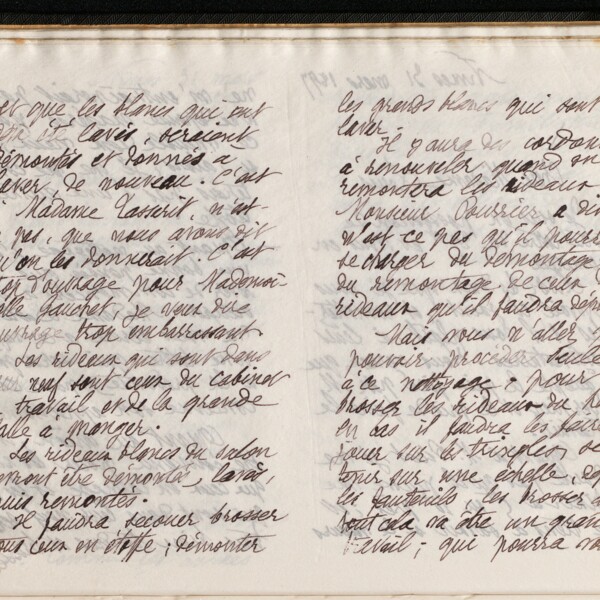 et que les blancs qui ont
déjà été lavés, seraient
démontés et donnés à
laver de nouveau. C'est
Madame Tasserit, n'est-
pas, que nous avons dit
qu'on les donnerait. C'est
trop d'ouvrage pour Mademoi-
Gauchet, je veux dire
ouvrage trop embarrassant
Les rideaux qui sont dans
neuf sont ceux du cabinet
travail et de la grande
salle à manger.
Les rideaux blancs du salon
devront être démontés, lavés,
puis remontés.
Il faudra secouer brosser
tous ceux en étoffe, démonter
Tours 31 mars 1897
les grands blancs qui sont
laver.
Il y aura des cordons
à renouveler quand on
remontera les rideaux
Monsieur Pourrier a dit
n'est ce pas qu'il pourrait
se charger du démontage
du remontage de ceux
rideaux qu'il faudra
Mais vous n'allez
pouvoir procéder seule
à ce nettoyage. pour
brosser les rideaux du
en bas il faudra les faire
jouer sur les tringles, se
tenir sur une échelle,
les fauteuils, les brosser
tout cela va être un grand
travail; qui pourra